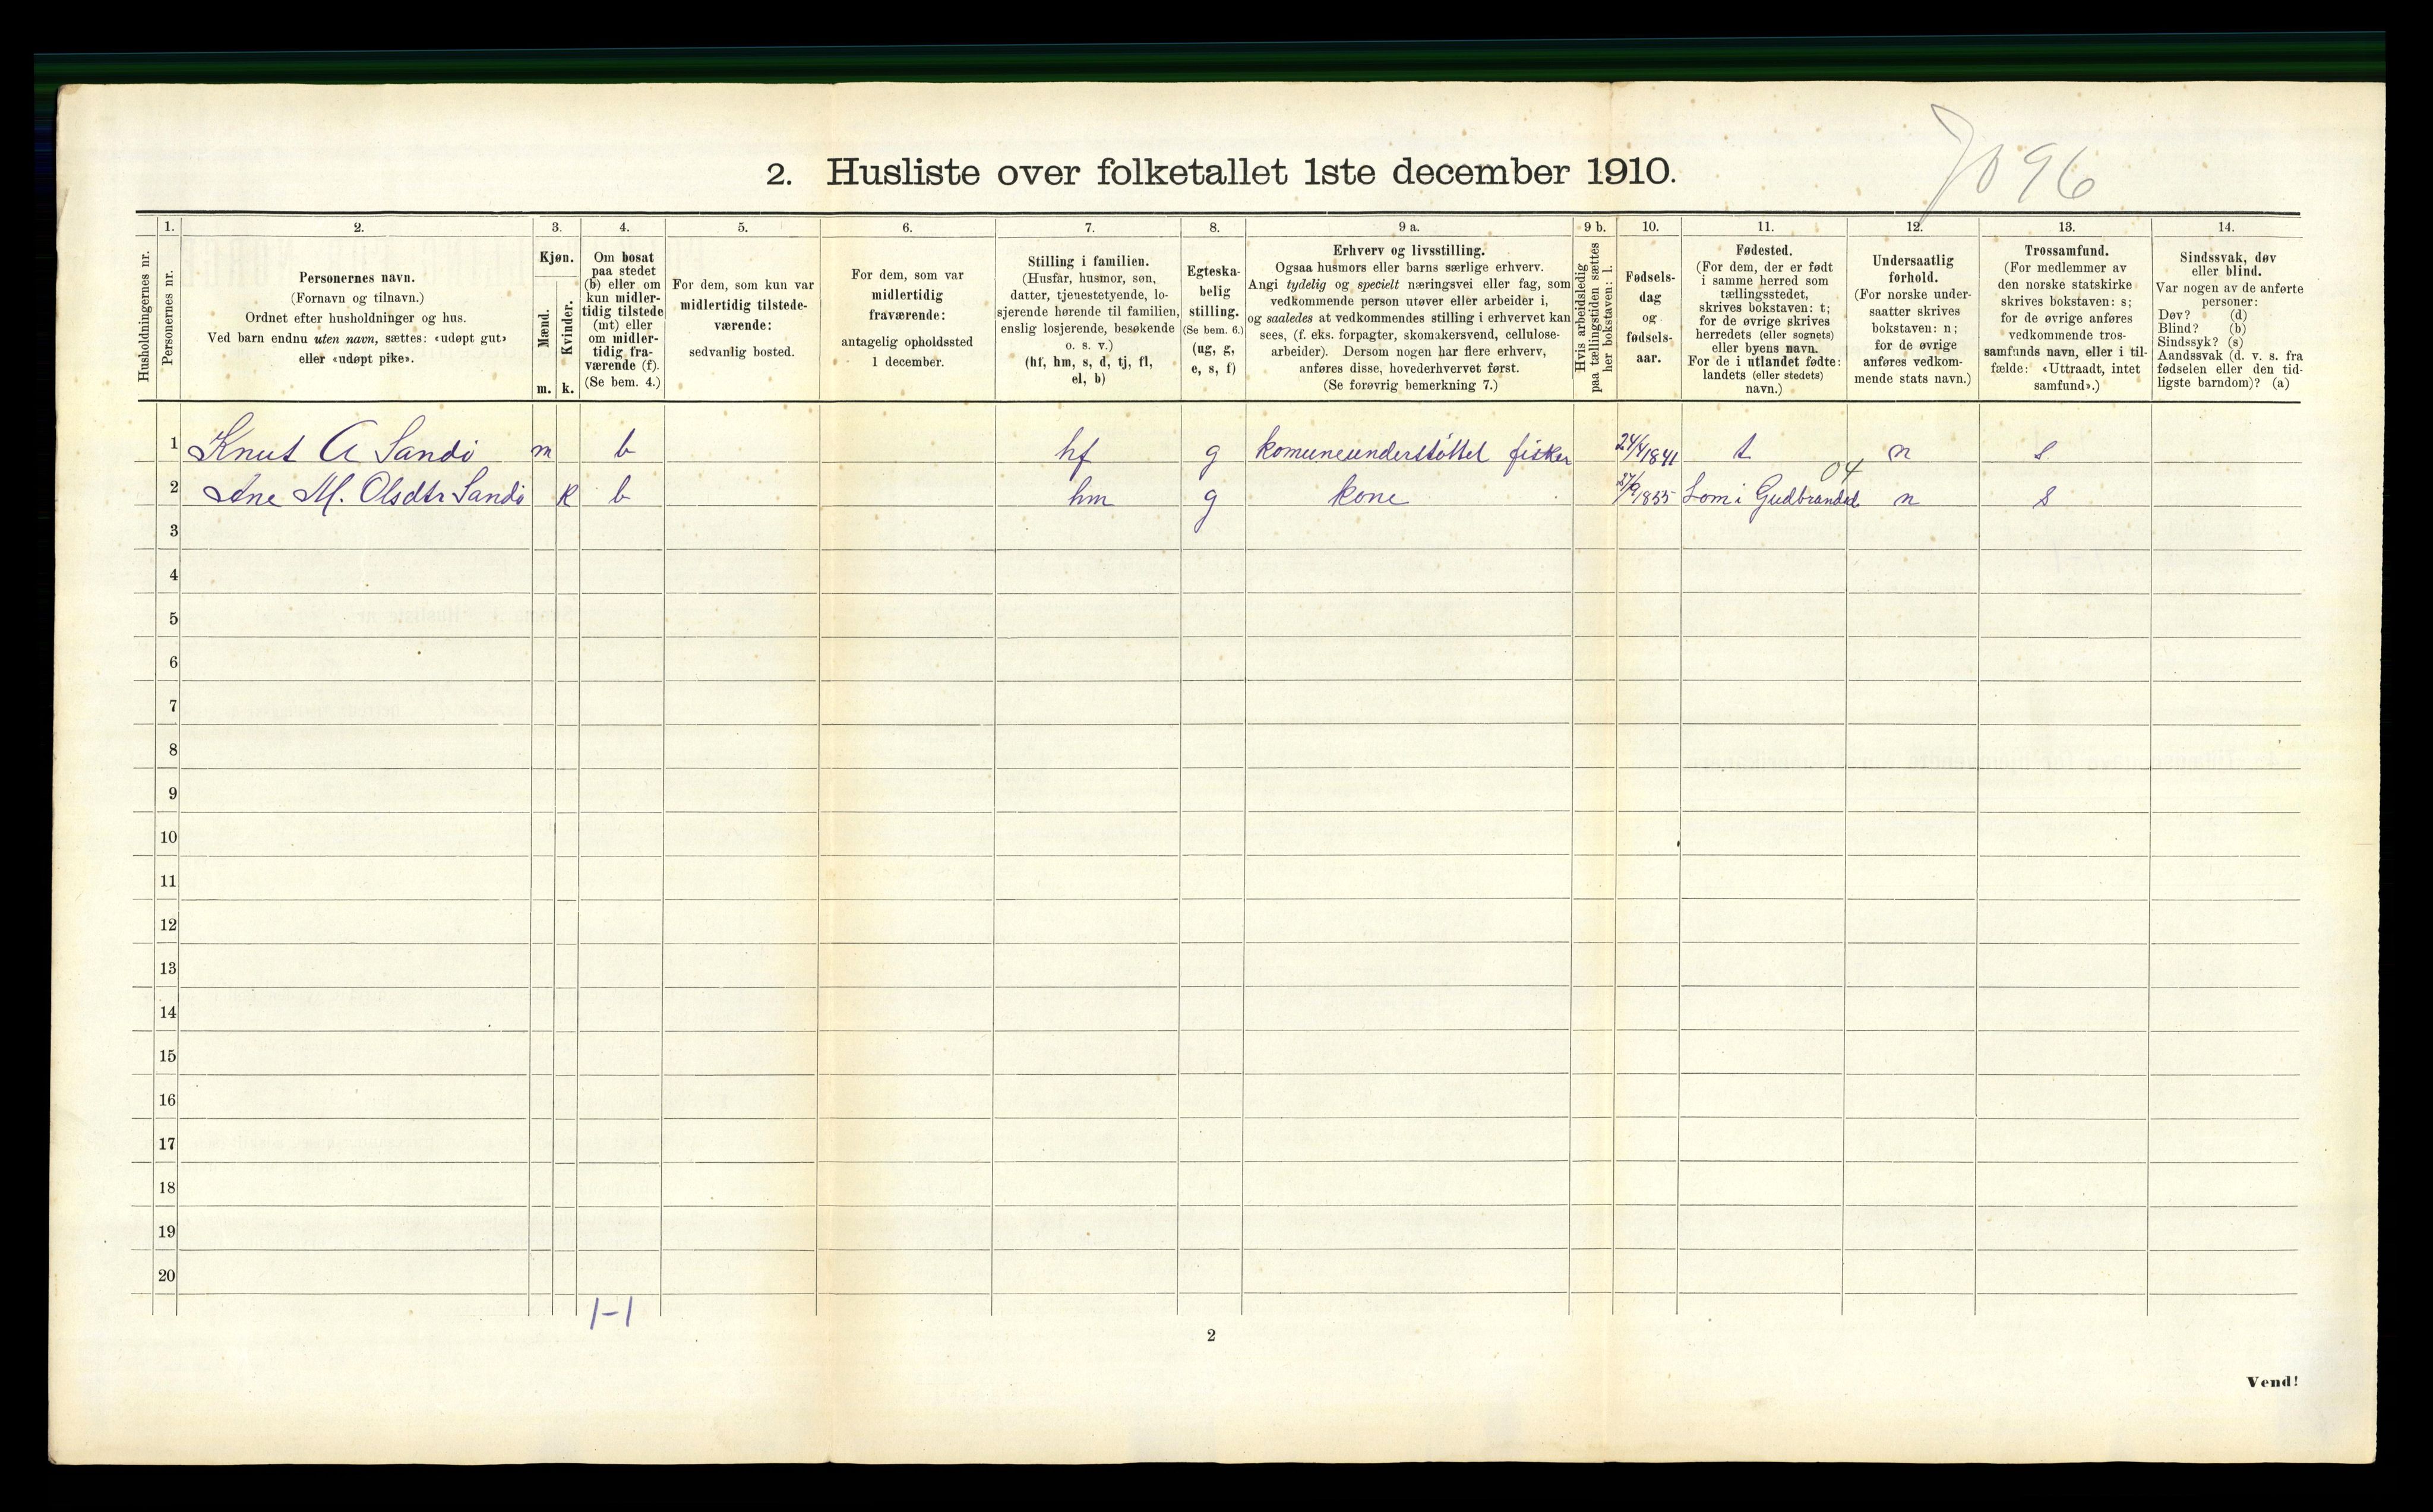 7096
2. Husliste over folketallet 1ste december 1910.
Husholdningernes nr.
1.
Personernes nr.
2.
Personernes navn.
(Fornavn og tilnavn.)
Ordnet efter husholdninger og hus.
Ved barn endnu uten navn, sættes: «udøpt gut»
eller «udøpt pike».
3.
Kjøn.
Mænd.
m.
Kvinder.
k.
4.
Om bosat
paa stedet
(b) eller om
kun midler-
tidig tilstede
(mt) eller
om midler-
tidig fra-
værende (f).
(Se bem. 4.)
5.
For dem, som kun var
midlertidig tilstede-
værende:
sedvanlig bosted.
6.
For dem, som var
midlertidig
fraværende:
antagelig opholdssted
1 december.
7.
Stilling i familien.
(Husfar, husmor, søn,
datter, tjenestetyende, lo-
sjerende hørende til familien,
enslig losjerende, besøkende
o. s. v.)
(hf, hm, s, d, tj, fl,
el, b)
8.
Egteska-
belig
stilling.
(Se bem. 6.)
(ug, g,
e, s, f)
9 a.
Erhverv og livsstilling.
Ogsaa husmors eller barns særlige erhverv.
Angi tydelig og specielt næringsvei eller fag, som
vedkommende person utøver eller arbeider i,
og saaledes at vedkommendes stilling i erhvervet kan
sees, (f. eks. forpagter, skomakersvend, cellulose-
arbeider). Dersom nogen har flere erhverv,
anføres disse, hovederhvervet først.
(Se forøvrig bemerkning 7.)
9 b.
Hvis arbeidsledig
paa tællingstiden sættes
her bokstaven: l.
10.
Fødsels-
dag
og
fødsels-
aar.
11.
Fødested.
(For dem, der er født
i samme herred som
tællingsstedet,
skrives bokstaven: t;
for de øvrige skrives
herredets (eller sognets)
eller byens navn.
For de i utlandet fødte:
landets (eller stedets)
navn.)
12.
Undersaatlig
forhold.
(For norske under-
saatter skrives
bokstaven: n;
for de øvrige
anføres vedkom-
mende stats navn.)
13.
Trossamfund.
(For medlemmer av
den norske statskirke
skrives bokstaven: s;
for de øvrige anføres
vedkommende tros-
samfunds navn, eller i til-
fælde: «Uttraadt, intet
samfund».)
14.
Sindssvak, døv
eller blind.
Var nogen av de anførte
personer:
Døv? (d)
Blind? (b)
Sindssyk? (s)
Aandssvak (d. v. s. fra
fødselen eller den tid-
ligste barndom)? (a)
1 Knut A Sandø m b hf g komuneunderstøttet fisker 24/4 1841 t n s
04
2 Ane M. Olsdtr Sandø k b hm g kone 1855 Lom i Gudbrandsd. n s
3
4
5
6
7
8
9
10
11
12
13
14
15
16
17
18
19
20
1-1
2
Vend!